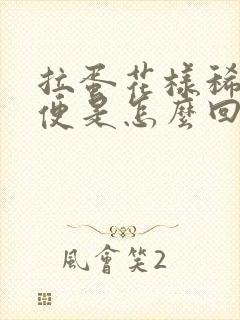 拉蛋花樣稀
便是怎麼回
風會笑2